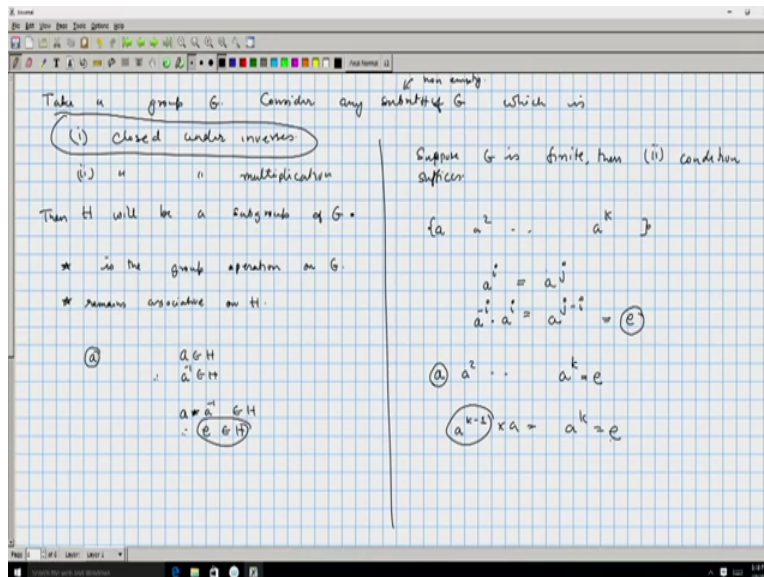 Xournal
File Edit View Page Tools Options Help
non empty.
Take a group G. Consider any subset H of G which is
(i) closed under inverses
(ii) " " multiplication
Then H will be a subgroup of G.
* is the group operation on G.
* remains associative on H.
a a ∈ H
∴ a⁻¹ ∈ H
a * a⁻¹ ∈ H
∴ e ∈ H
Suppose G is finite, then (ii) condition
suffices
{a a² .. a^k }
a^i = a^j
a^-i . a^i = a^j-i = e
a a² .. a^k = e
a^k-1 x a = a^k = e
Layer: Layer 1
Search the web and Windows